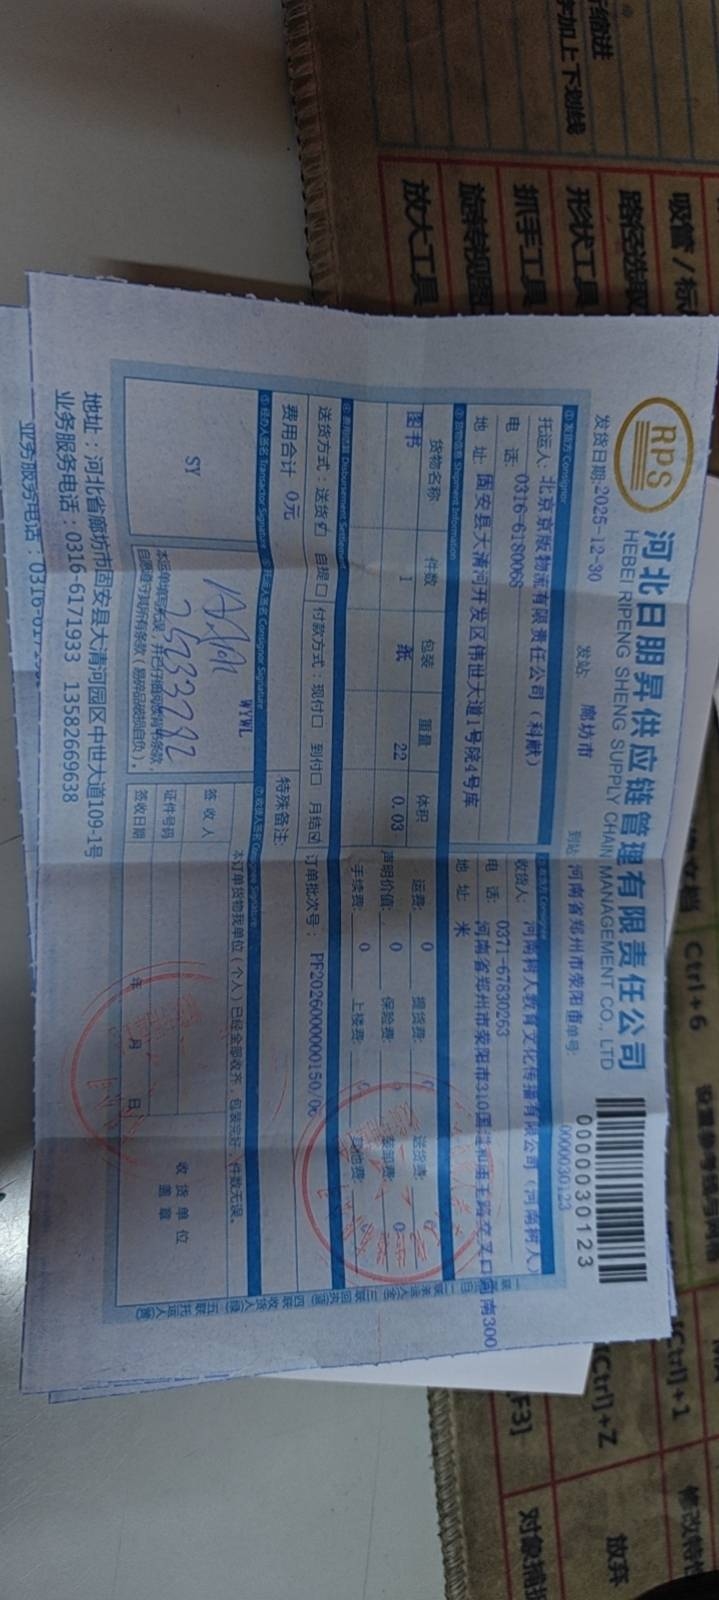 RPS
河北日朋昇供应链管理有限责任公司
HEBEI RIPENG SHENG SUPPLY CHAIN MANAGEMENT CO., LTD
0000030123
发货日期:2025-12-30
发站 廊坊市
到站 河南省郑州市荥阳市
单号: 0000030123
①发货方 Consignor
托运人: 北京京版物流有限责任公司(科献)
电 话: 0316-6180068
地 址: 固安县大清河开发区伟世大道1号院4号库
收货人: 河南树人教育文化传播有限公司(河南树人)
电 话: 0371-67830263
河南省郑州市荥阳市310国道和
主路交叉口
南300
地 址: 米
Shipment Information
货物名称 件数 包装 重量 体积
图书 1 纸 22 0.03
运费: 0 提货费: 0 送货费:
声明价值: 0 保险费: 0 装卸费: 0
手续费: 0 上楼费: 0 其他费:
Disbursement Settlement
送货方式: 送货☑ 自提☐ 付款方式: 现付☐ 到付☐ 月结☑ 订单批次号: PF2026000000150/0
费用合计 0元
特殊备注
Transactor Signature
Consignor Signature
SY
WYWL
自愿遵守其所有条款(易碎品破损自负)。
本订单货物我单位(个人)已经全部收齐,包装完好、件数无误。
签 收 人
证件号码
签收日期
年 月 日
收 货 单 位
盖 章
地址:河北省廊坊市固安县大清河园区中世大道109-1号
业务服务电话:0316-6171933 13582669638
业务服务电话:0316-617
字加上下划线
吸管/标
路径选取
形状工具
抓手工具
旋转视图
放大工具
Ctrl+6
Ctrl)+1
(Ctrl)+Z
F3]
放弃
对象捕捉